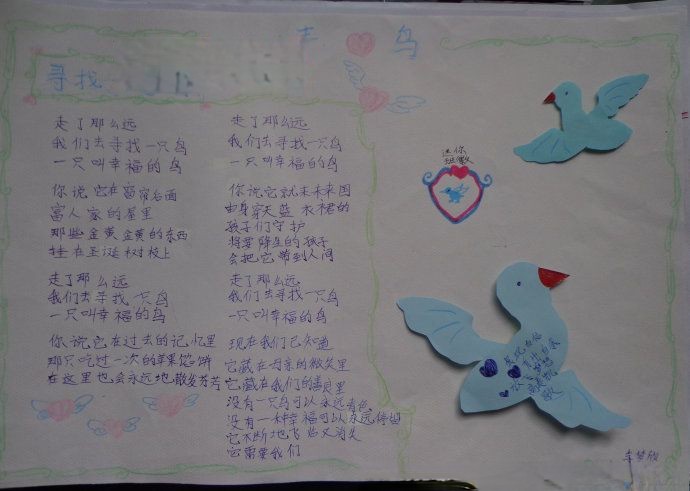 鸟
寻找
走了那么远
我们去寻找一只鸟
一只叫幸福的鸟
你说它在窗帘后面
富人家的屋里
那些金黄金黄的东西
挂在圣诞树枝上
走了那么远
我们去寻找一只鸟
一只叫幸福的鸟
你说它在过去的记忆里
那只吃过一次的苹果馅饼
在这里也会永远地散发芬芳
走了那么远
我们去寻找一只鸟
一只叫幸福的鸟
你说它就未来国
由身穿天蓝衣裙的
孩子们守护
将要降生的孩子
会把它带到人间
走了那么远
我们去寻找一只鸟
一只叫幸福的鸟
现在我们已知道
它藏在母亲的微笑里
它藏在我们的里
没有一只鸟可以永远青色
没有一种幸福可以永远停留
它不断地飞临又消失
它需要我们
迷你